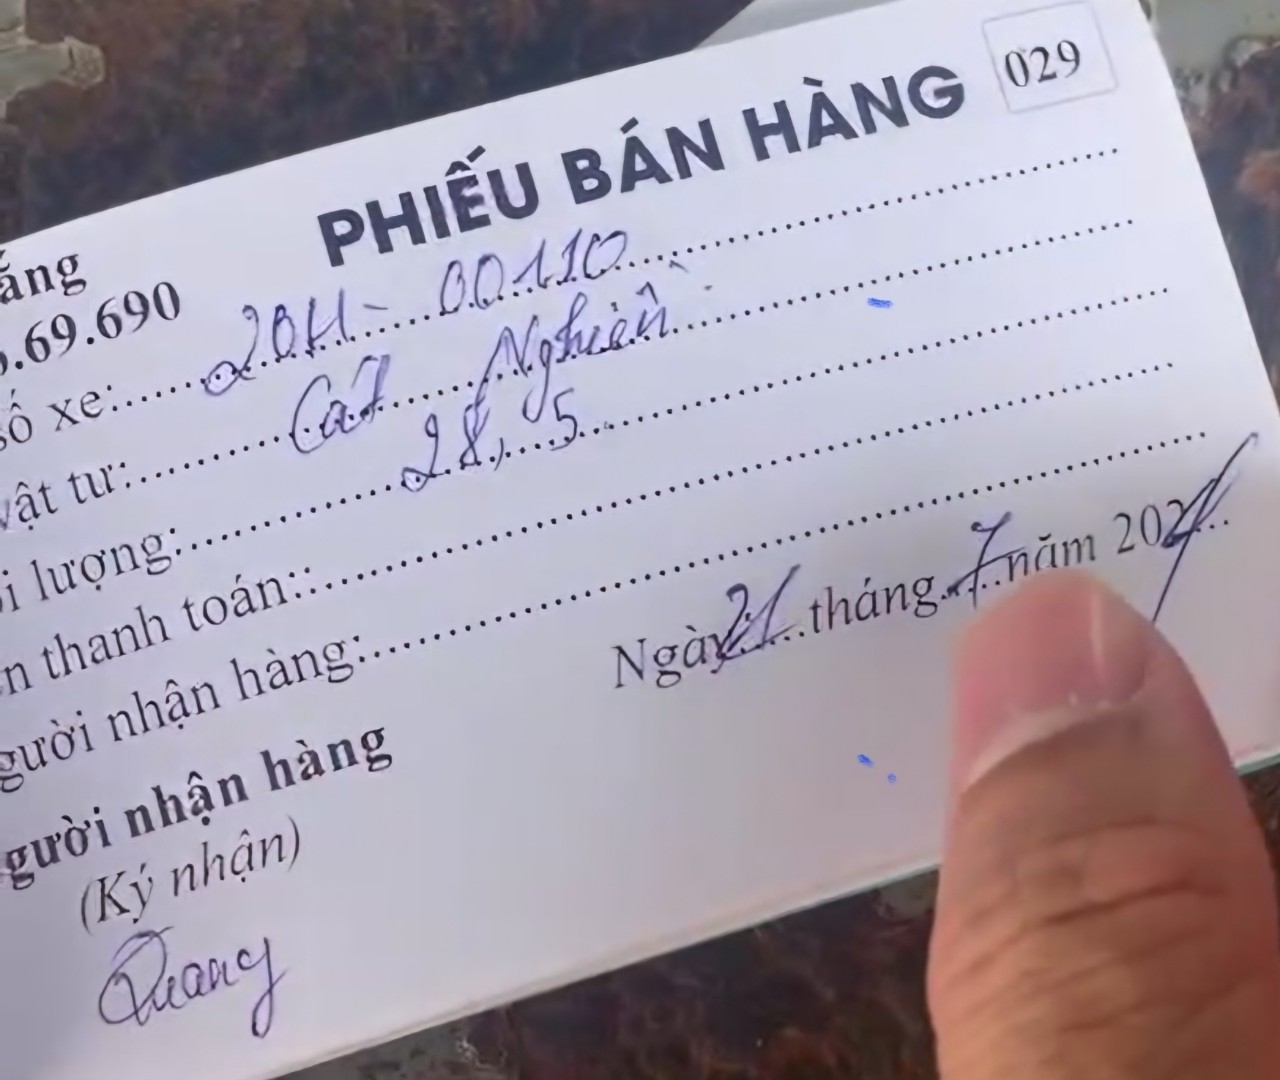 PHIẾU BÁN HÀNG 029
ăng
.69.690
số xe: 20H - 00110
vật tư: Cát Nghiền
i lượng: 28,5
n thanh toán:
gười nhận hàng:
Ngày 21 tháng 7 năm 202
gười nhận hàng
(Ký nhận)
Quang